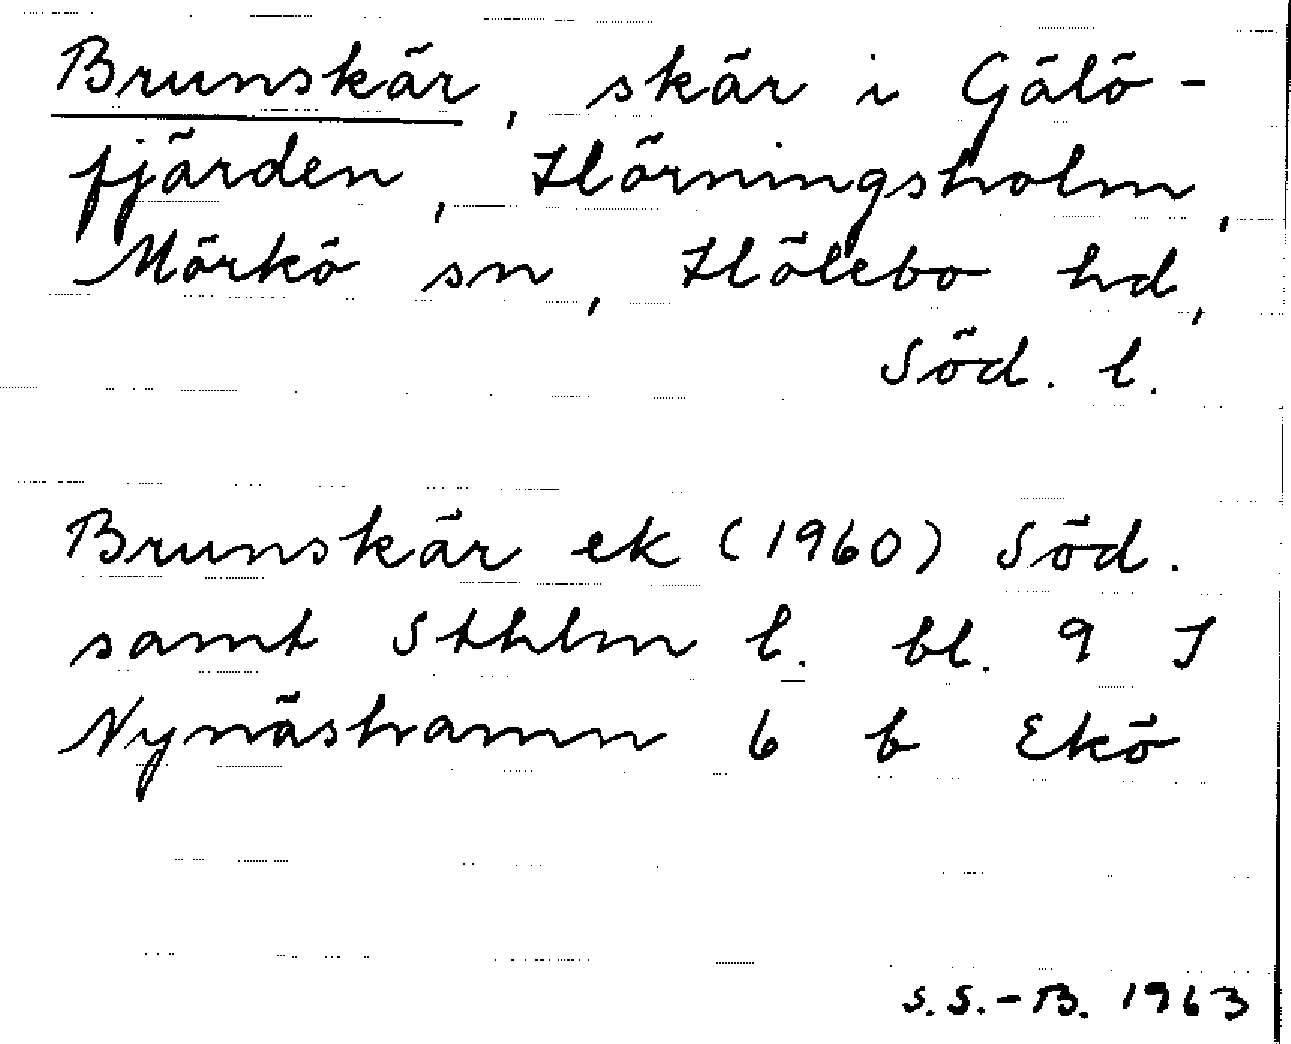 Brunskär, skär i Gälö-
fjärden, Hörningsholm,
Mörkö sn, Hölebo hd,
Söd. l.
Brunskär ek (1960) Söd.
samt Sthlm l. bl. 9 I
Nynäshamn 6 b Ekö
S.S.-B. 1963